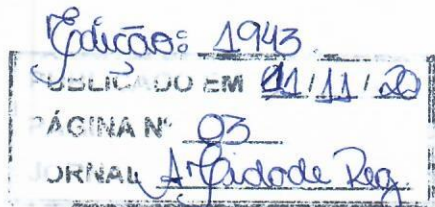 Edição: 1943
PUBLICADO EM 11/11/20
PÁGINA Nº 03
JORNAL A Cidade Reg